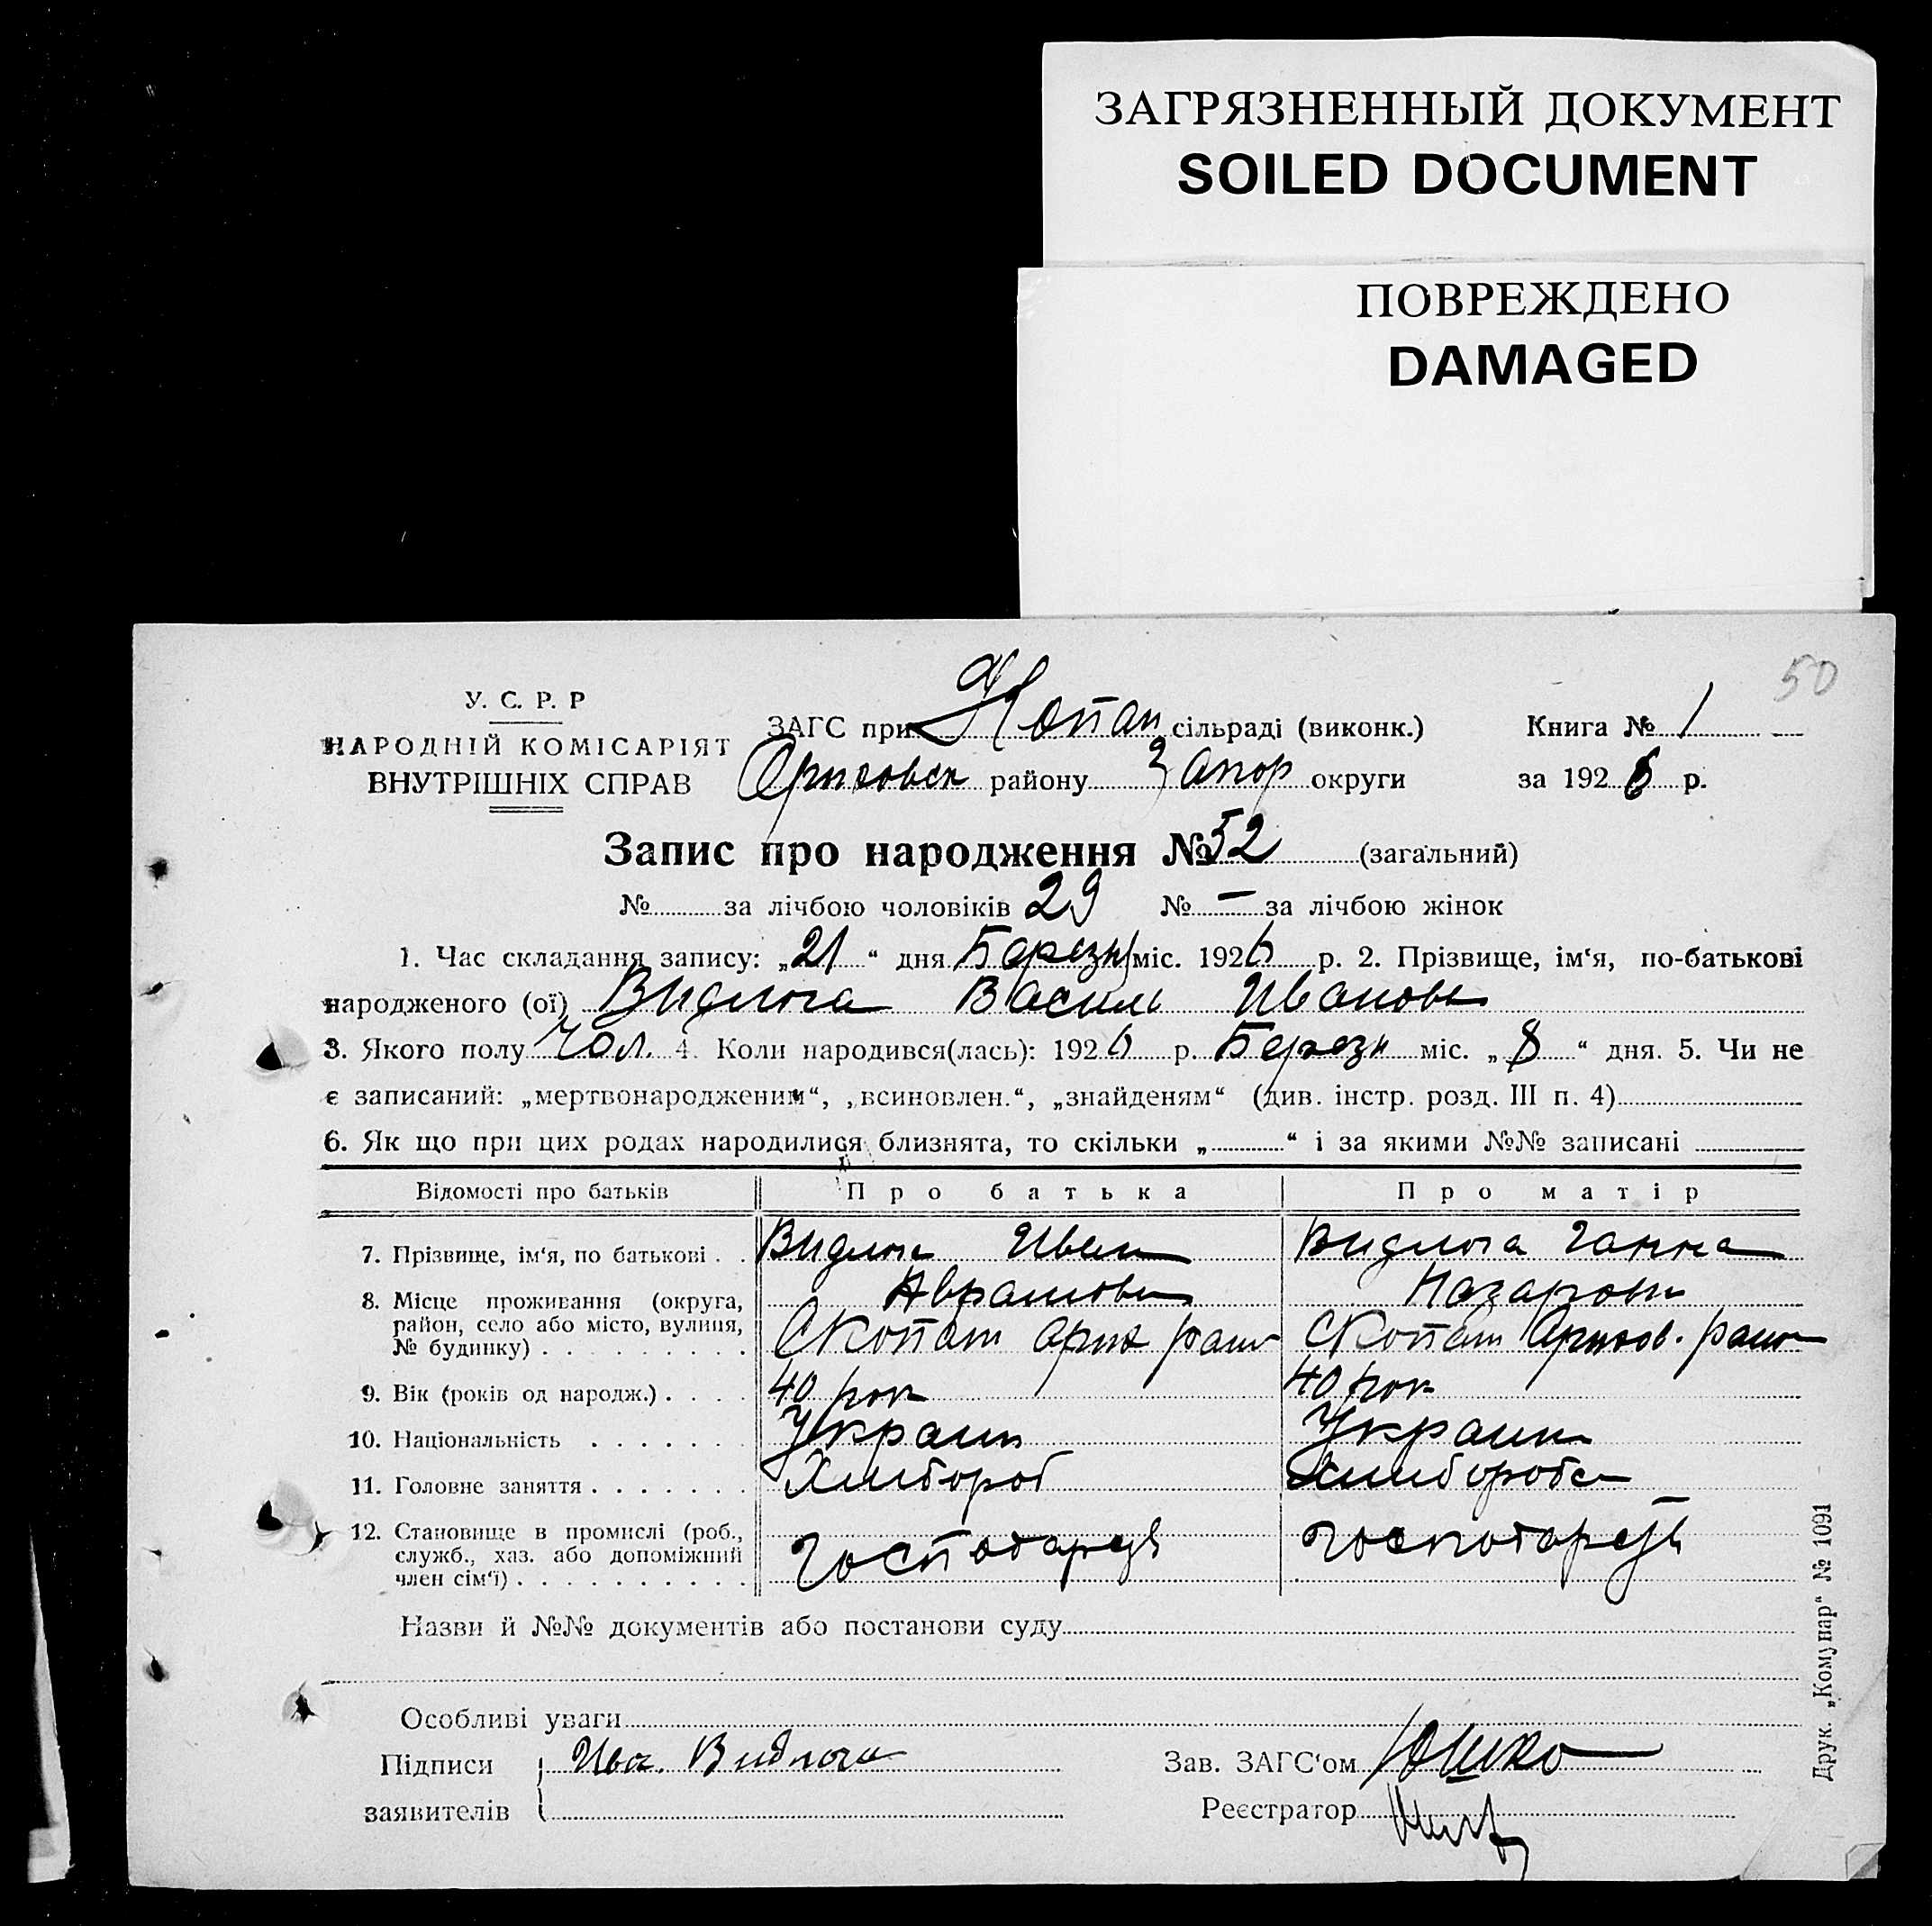 ЗАГРЯЗНЕННЫЙ ДОКУМЕНТ
SOILED DOCUMENT
ПОВРЕЖДЕНО
DAMAGED
50
У. С. Р. Р
НАРОДНІЙ КОМІСАРІЯТ
ВНУТРІШНІХ СПРАВ
ЗАГС при Копан сільраді (виконк.) Книга № 1
Оріховск району Запор округи за 1926 р.
Запис про народження № 52 (загальний)
№ за лічбою чоловіків 29 № — за лічбою жінок
1. Час складання запису: „21“ дня Березн міс. 1926 р. 2. Прізвище, ім‘я, по-батькові
народженого (ої) Виднога Василь Иванов
3. Якого полу Чол. 4. Коли народився(лась): 1926 р. Березн міс. „8“ дня. 5. Чи не
є записаний: „мертвонародженим“, „всиновлен.“, „знайденям“ (див. інстр. розд. III п. 4)
6. Як що при цих родах народилися близнята, то скільки „ “ і за якими №№ записані
Відомості про батьків Про батька Про матір
7. Прізвище, ім‘я, по батькові . . Иван Ганна
Аврамов Назаров
8. Місце проживання (округа,
район, село або місто, вулиця,
№ будинку) . . . . . . . . . С Копани Оріх С Копани Оріхов.
9. Вік (років од народж.) . . . . 40 рок 40 рок
10. Національність . . . . . . . Украин Украин
11. Головне заняття . . . . . . . Хлибороб Хлиборобс
12. Становище в промислі (роб.,
служб., хаз. або допоміжний
член сім‘ї) . . . . . . . . . .
Назви й №№ документів або постанови суду
Особливі уваги
Підписи Ива. Виднога Зав. ЗАГС‘ом Юшко
заявителів Реєстратор
Друк. „Комунар“ № 1091